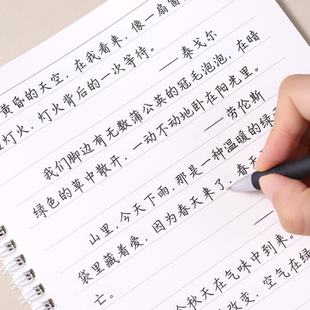 黄昏的天空，在我看来，像一扇窗
灯火，灯火背后的一次等待。
——泰戈尔
我们脚边有无数蒲公英的冠毛泡泡，在暗
绿色的草中散开，一动不动地卧在阳光里。
——劳伦斯
山里，今天下雨，那是一种温暖的绿
袋里藏着爱，因为春天来了，春天
亡。
秋天在气味中到来。
改变，空气在绿